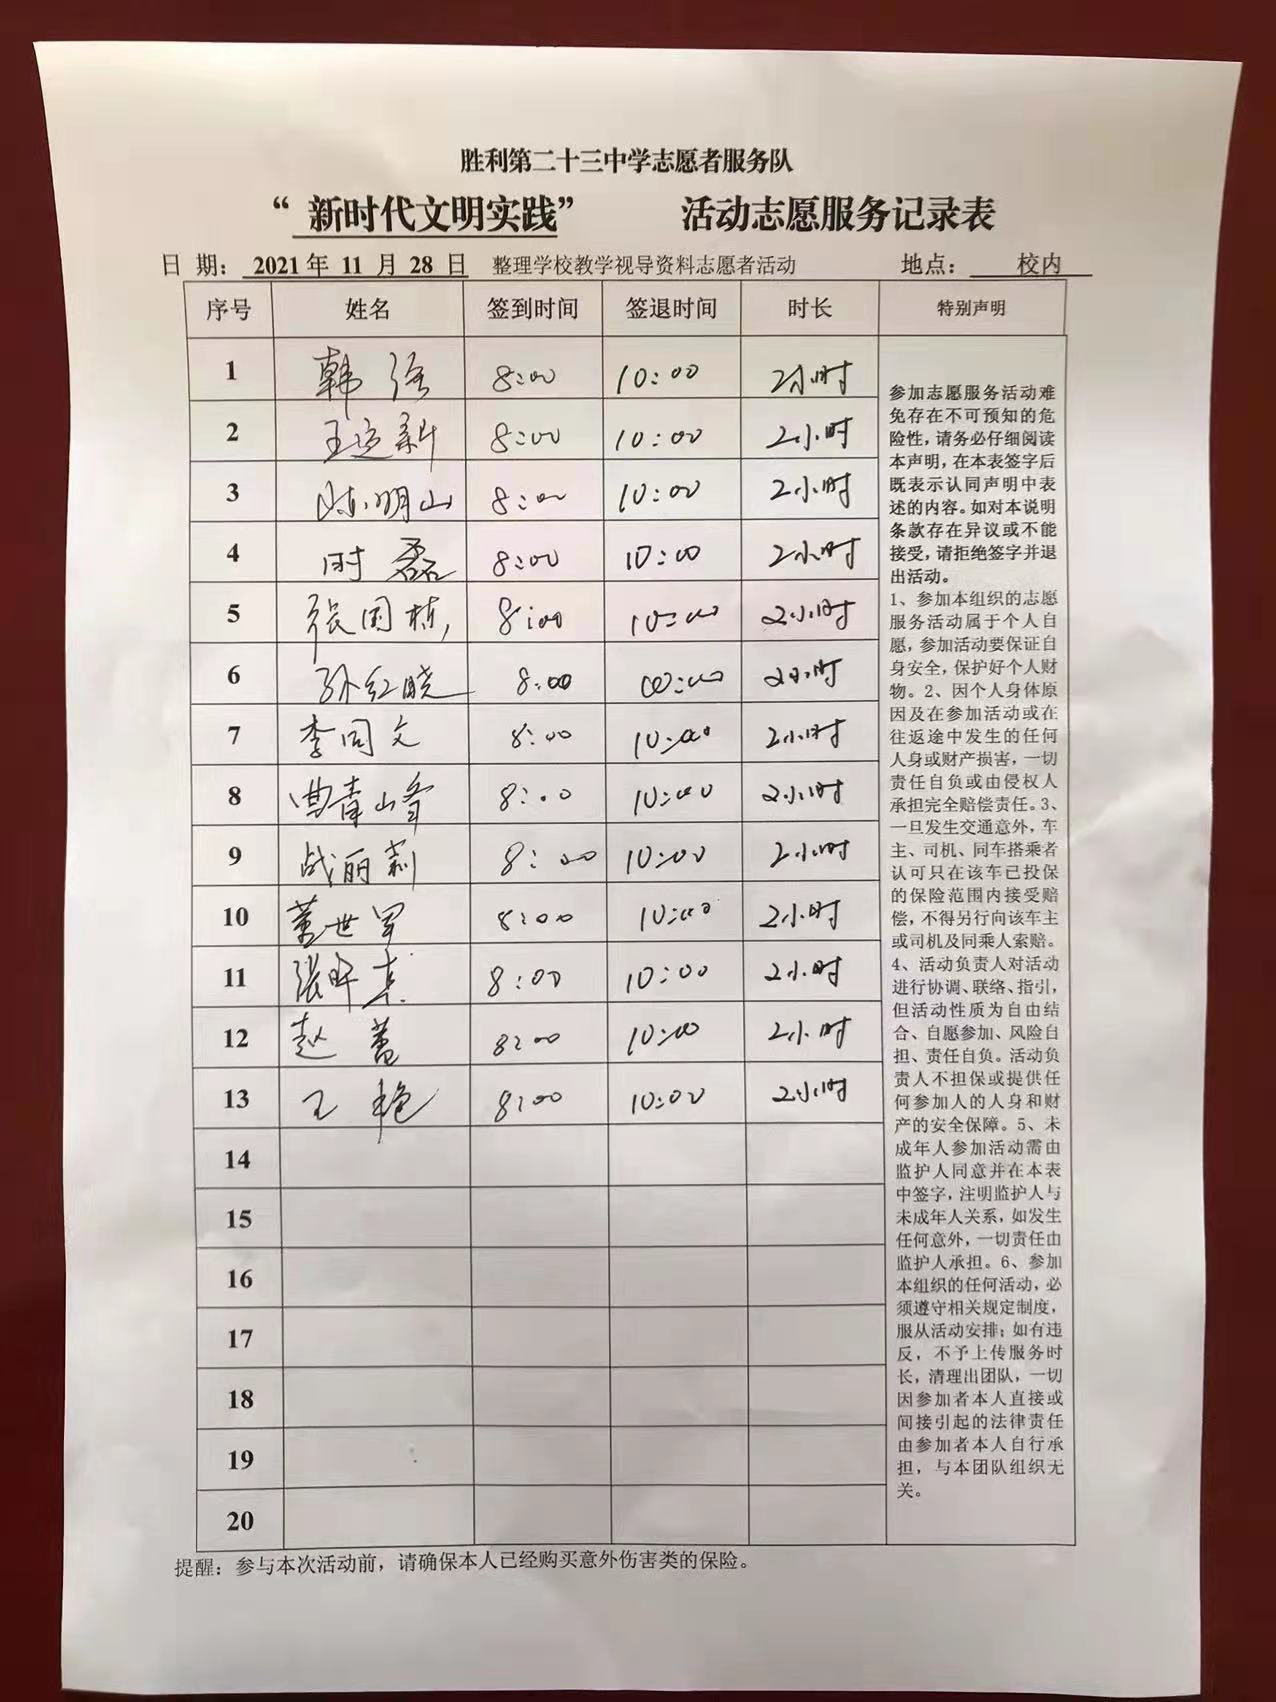 胜利第二十三中学志愿者服务队
“ 新时代文明实践” 活动志愿服务记录表
日 期: 2021 年 11 月 28 日 整理学校教学视导资料志愿者活动 地点: 校内
序号 姓名 签到时间 签退时间 时长 特别声明
1 韩 强 8:00 10:00 2小时
2 王运新 8:00 10:00 2小时
3 陈明山 8:00 10:00 2小时
4 时 磊 8:00 10:00 2小时
5 张国栋 8:00 10:00 2小时
6 孙红晓 8:00 10:00 2小时
7 李同文 8:00 10:00 2小时
8 曲青山峰 8:00 10:00 2小时
9 战丽莉 8:00 10:00 2小时
10 董世军 8:00 10:00 2小时
11 张 8:00 10:00 2小时
12 赵 蕾 8:00 10:00 2小时
13 王 艳 8:00 10:00 2小时
14
15
16
17
18
19
20
参加志愿服务活动难
免存在不可预知的危
险性,请务必仔细阅读
本声明,在本表签字后
既表示认同声明中表
述的内容。如对本说明
条款存在异议或不能
接受,请拒绝签字并退
出活动。
1、参加本组织的志愿
服务活动属于个人自
愿,参加活动要保证自
身安全,保护好个人财
物。2、因个人身体原
因及在参加活动或在
往返途中发生的任何
人身或财产损害,一切
责任自负或由侵权人
承担完全赔偿责任。3、
一旦发生交通意外,车
主、司机、同车搭乘者
认可只在该车已投保
的保险范围内接受赔
偿,不得另行向该车主
或司机及同乘人索赔。
4、活动负责人对活动
进行协调、联络、指引,
但活动性质为自由结
合、自愿参加、风险自
担、责任自负。活动负
责人不担保或提供任
何参加人的人身和财
产的安全保障。5、未
成年人参加活动需由
监护人同意并在本表
中签字,注明监护人与
未成年人关系,如发生
任何意外,一切责任由
监护人承担。6、参加
本组织的任何活动,必
须遵守相关规定制度,
服从活动安排;如有违
反,不予上传服务时
长,清理出团队,一切
因参加者本人直接或
间接引起的法律责任
由参加者本人自行承
担,与本团队组织无
关。
提醒:参与本次活动前,请确保本人已经购买意外伤害类的保险。